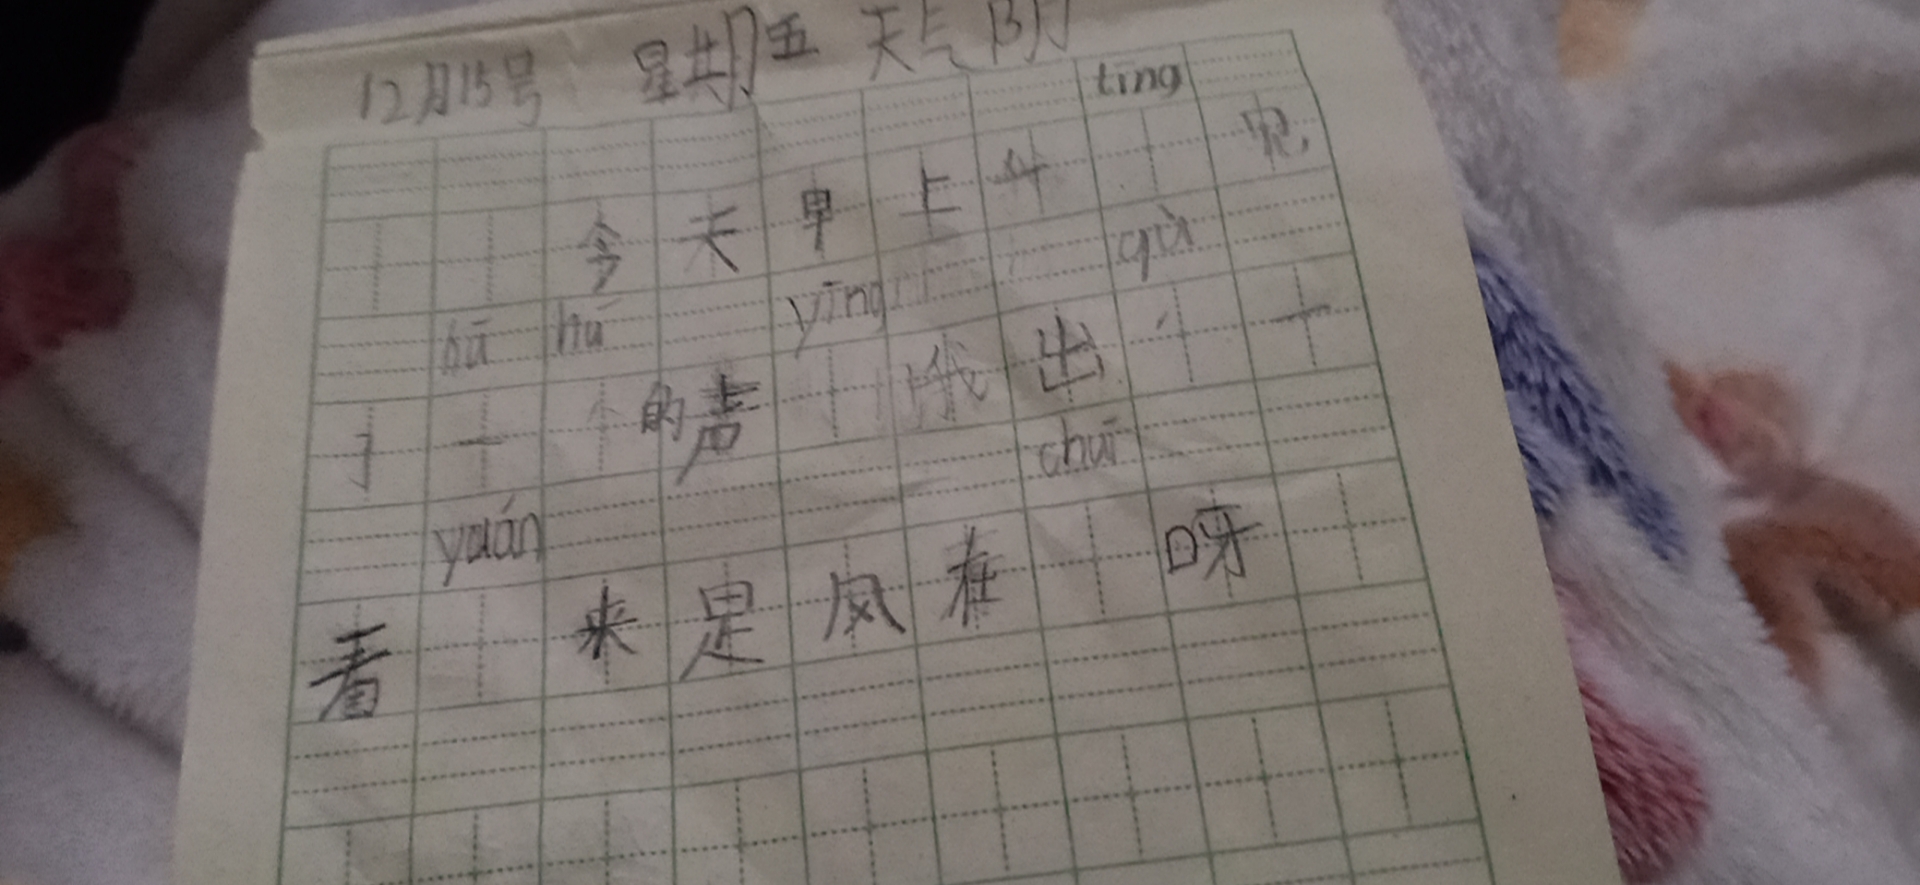 12月15号 星期五 天气阴
tīng
今天早上 见
hū hú yīng qù
了一个的声 哦出 一
yuán chuī
看 来是风在 呀